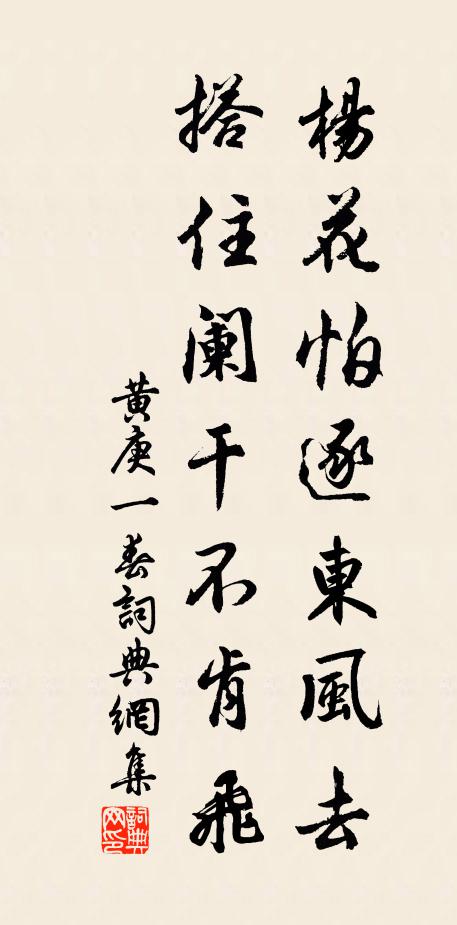 楊花怕逐東風去
搭住闌干不肯飛
黄庚一春詞典網集
詞典网印